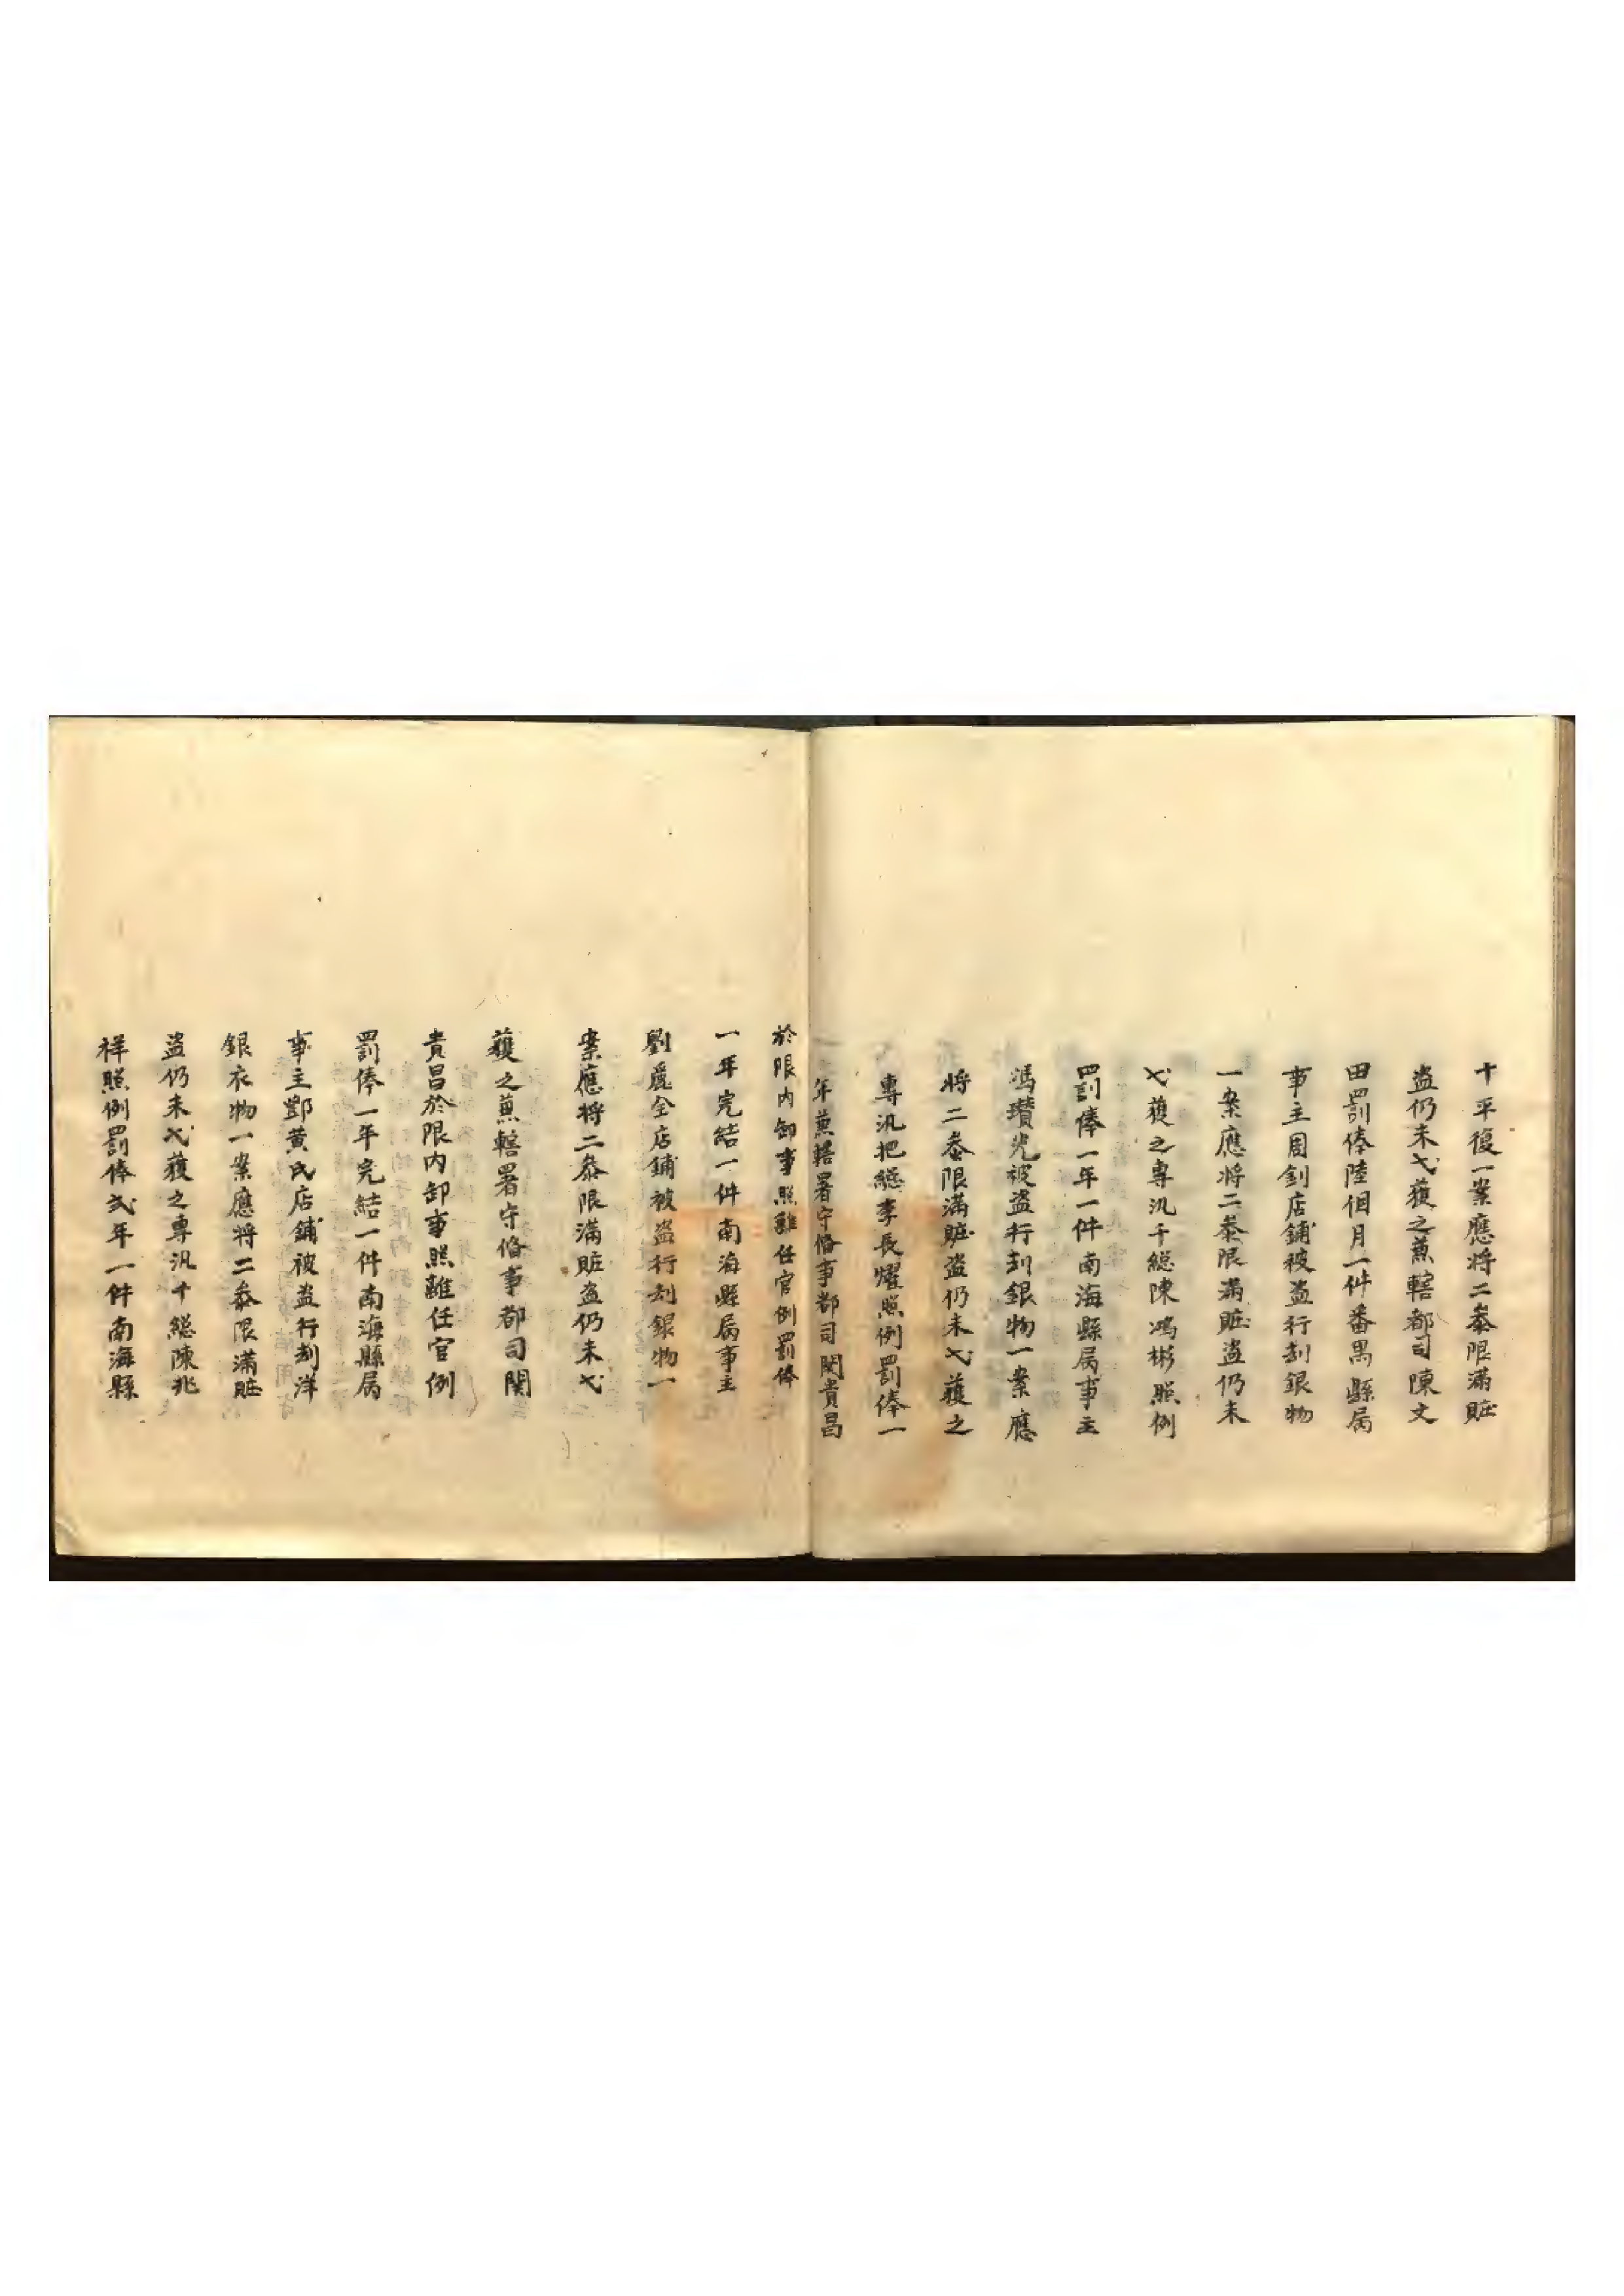 十平復一案應將二叅限滿賍
盗仍未弋獲之蒹轄都司陳文
田罰俸陸個月一件番禺縣屬
事主周釗店鋪被盗行刦銀物
一案應将二叅限滿賍盗仍未
弋獲之専汛千総陳鴻彬照例
罰俸一年一件南海縣属事主
馮瓚光被盗行刦銀物一案應
将二叅限滿賍盗仍未弋獲之
專汛把総李長燿照例罰俸一
年蒹轄署守俻事都司関貴昌
於限内卸事照離任官例罰俸
一年完結一件南海縣属事主
劉麗全店鋪被盗行刦銀物一
案應将二叅限滿賍盗仍未弋
獲之蒹轄署守俻事都司関
貴昌於限内卸事照離任官例
罰俸一年完結一件南海縣属
事主鄧黄氏店鋪被盗行刦洋
銀衣物一案應将二叅限滿賍
盗仍未弋獲之専汛千総陳兆
祥照例罰俸弍年一件南海縣